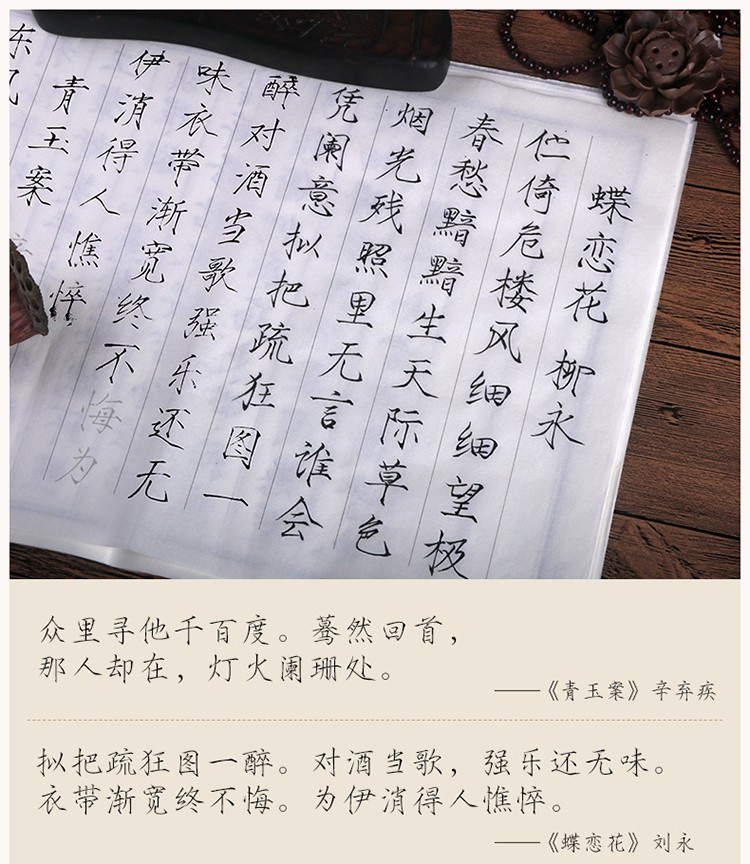 蝶恋花 柳永
伫倚危楼风细细望极
春愁黯黯生天际草色
烟光残照里无言谁会
凭阑意拟把疏狂图一
醉对酒当歌强乐还无
味衣带渐宽终不悔为
伊消得人憔悴
青玉案
东
众里寻他千百度。蓦然回首,
那人却在，灯火阑珊处。
——《青玉案》辛弃疾
拟把疏狂图一醉。对酒当歌，强乐还无味。
衣带渐宽终不悔。为伊消得人憔悴。
——《蝶恋花》刘永